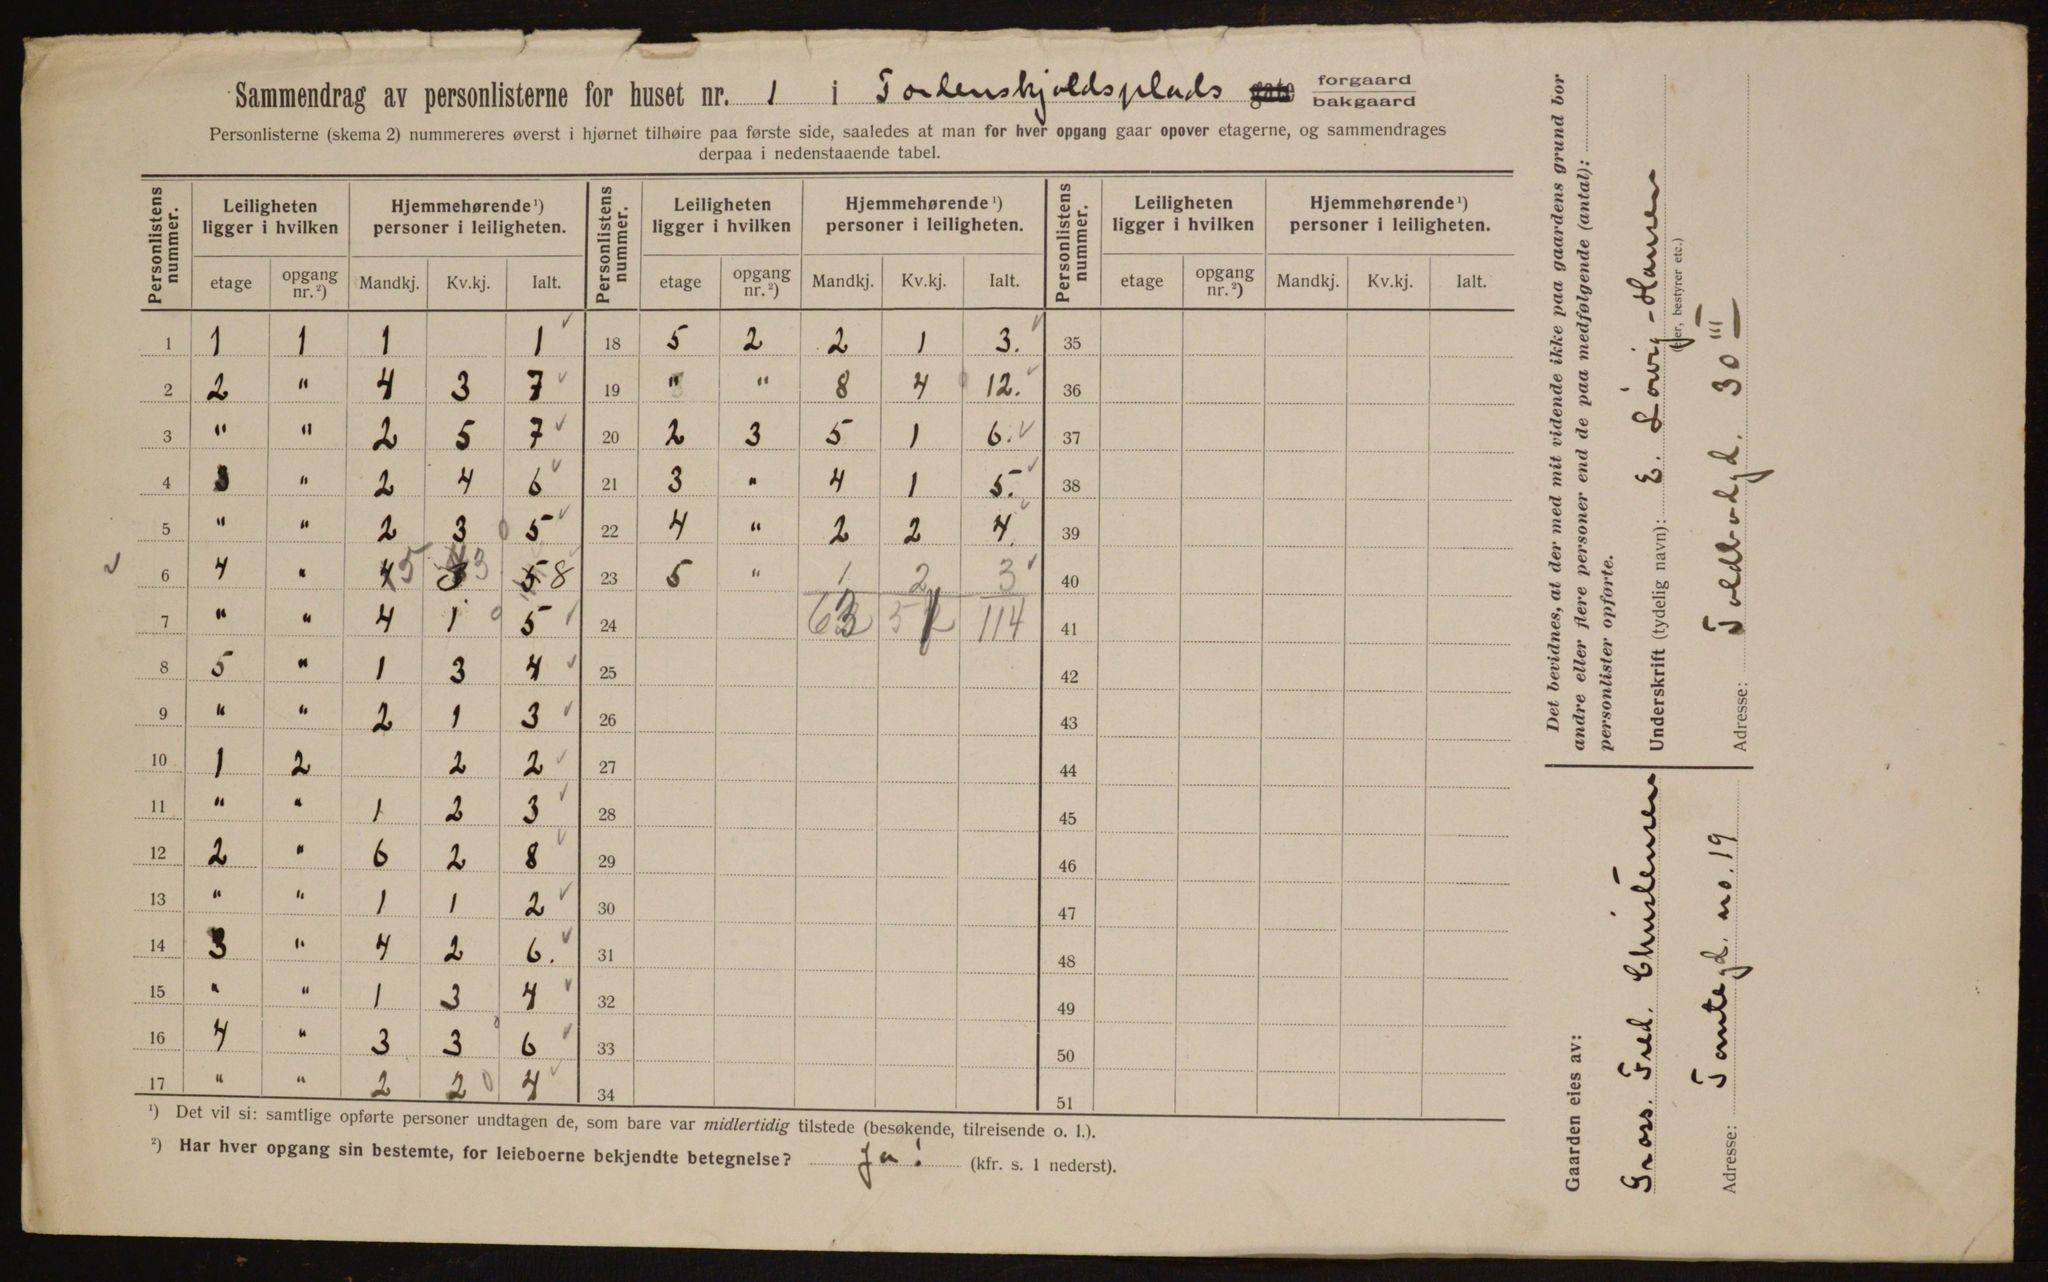 Sammendrag av personlisterne for huset nr. 1 i Tordenskjoldsplads gate forgaard bakgaard
Personlisterne (skema 2) nummereres øverst i hjørnet tilhøire paa første side, saaledes at man for hver opgang gaar opover etagerne, og sammendrages
derpaa i nedenstaaende tabel.
Personlistens nummer. | Leiligheten ligger i hvilken | Hjemmehørende ¹) personer i leiligheten. | Personlistens nummer. | Leiligheten ligger i hvilken | Hjemmehørende ¹) personer i leiligheten. | Personlistens nummer. | Leiligheten ligger i hvilken | Hjemmehørende ¹) personer i leiligheten.
etage | opgang nr. ²) | Mandkj. | Kv.kj. | Ialt. | etage | opgang nr. ²) | Mandkj. | Kv.kj. | Ialt. | etage | opgang nr. ²) | Mandkj. | Kv.kj. | Ialt.
1 | 1 | 1 | 1 | | 1 ✓ | 18 | 5 | 2 | 2 | 1 | 3. ✓ | 35
2 | 2 | " | 4 | 3 | 7 ✓ | 19 | " | " | 8 | 4 | 0 12. ✓ | 36
3 | " | " | 2 | 5 | 7 ✓ | 20 | 2 | 3 | 5 | 1 | 6. ✓ | 37
4 | 3 | " | 2 | 4 | 6 ✓ | 21 | 3 | " | 4 | 1 | 5. ✓ | 38
5 | " | " | 2 | 3 | 0 5 ✓ | 22 | 4 | " | 2 | 2 | 4. ✓ | 39
✓ 6 | 4 | " | 4 5 | 3 3 | 5. 8 | 23 | 5 | " | 1 | 2 | 3 ✓ | 40
7 | " | " | 4 | 1 | 0 5 ✓ | 24 | | | 63 | 51 | 114 | 41
8 | 5 | " | 1 | 3 | 4 ✓ | 25 | 42
9 | " | " | 2 | 1 | 3 ✓ | 26 | 43
10 | 1 | 2 | | 2 | 2 ✓ | 27 | 44
11 | " | " | 1 | 2 | 3 ✓ | 28 | 45
12 | 2 | " | 6 | 2 | 8 ✓ | 29 | 46
13 | " | " | 1 | 1 | 2 ✓ | 30 | 47
14 | 3 | " | 4 | 2 | 6. ✓ | 31 | 48
15 | " | " | 1 | 3 | 4 ✓ | 32 | 49
16 | 4 | " | 3 | 3 | 0 6 ✓ | 33 | 50
17 | " | " | 2 | 2 | 0 4 ✓ | 34 | 51
¹) Det vil si: samtlige opførte personer undtagen de, som bare var midlertidig tilstede (besøkende, tilreisende o. l.).
²) Har hver opgang sin bestemte, for leieboerne bekjendte betegnelse? Ja! (kfr. s. 1 nederst).
Det bevidnes, at der med mit vidende ikke paa gaardens grund bor
andre eller flere personer end de paa medfølgende (antal):
personlister opførte.
Underskrift (tydelig navn): E. Lövig-Hansen
(Eier, bestyrer etc.)
Adresse: Toldbodgd. 30 III
Gaarden eies av:
Gross. Fred. Christensen
Adresse: Tomtegd. no. 19